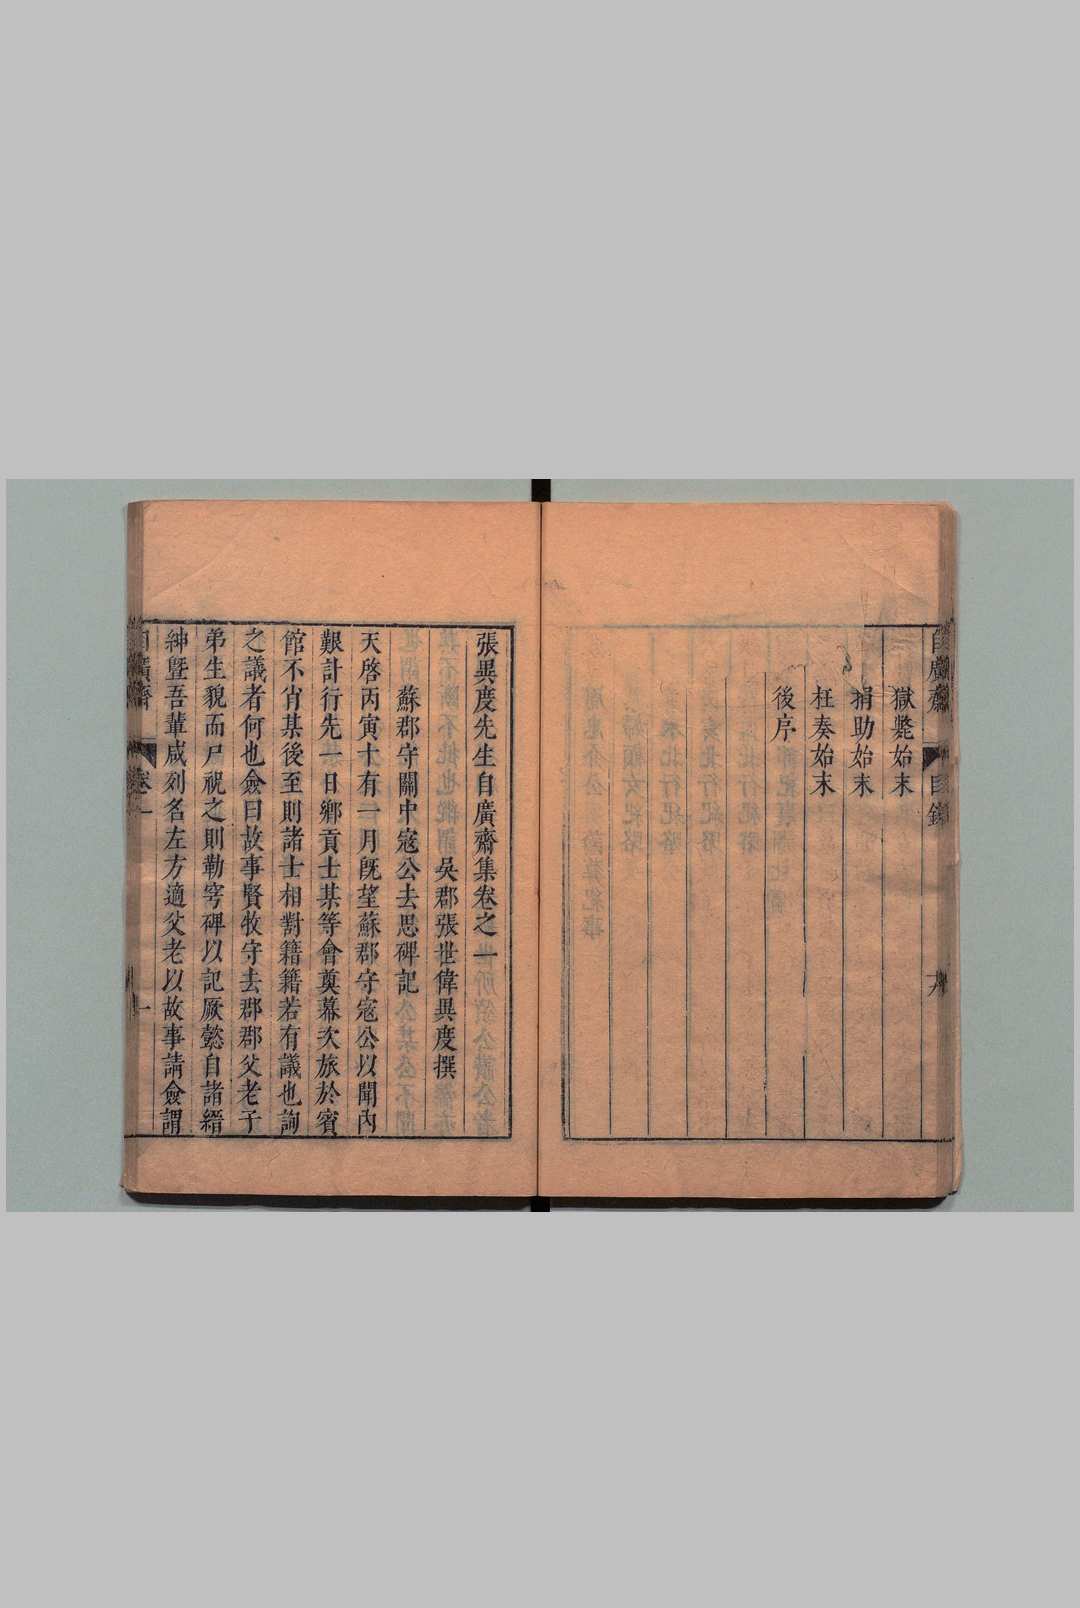 自廣齋 目錄
獄斃始末
捐助始末
枉奏始末
後序
張異度先生自廣齋集卷之一
吳郡張世偉異度撰
蘇郡守關中寇公去思碑記
天啓丙寅十有一月旣望蘇郡守寇公以聞內
艱計行先一日鄉貢士某等會奠幕次旅於賓
館不肖某後至則諸士相對籍籍若有議也詢
之議者何也僉曰故事賢牧守去郡郡父老子
弟生貌而尸祝之則勒穹碑以記厥懿自諸縉
紳曁吾輩咸列名左方適父老以故事請僉謂
自廣齋 卷一 一